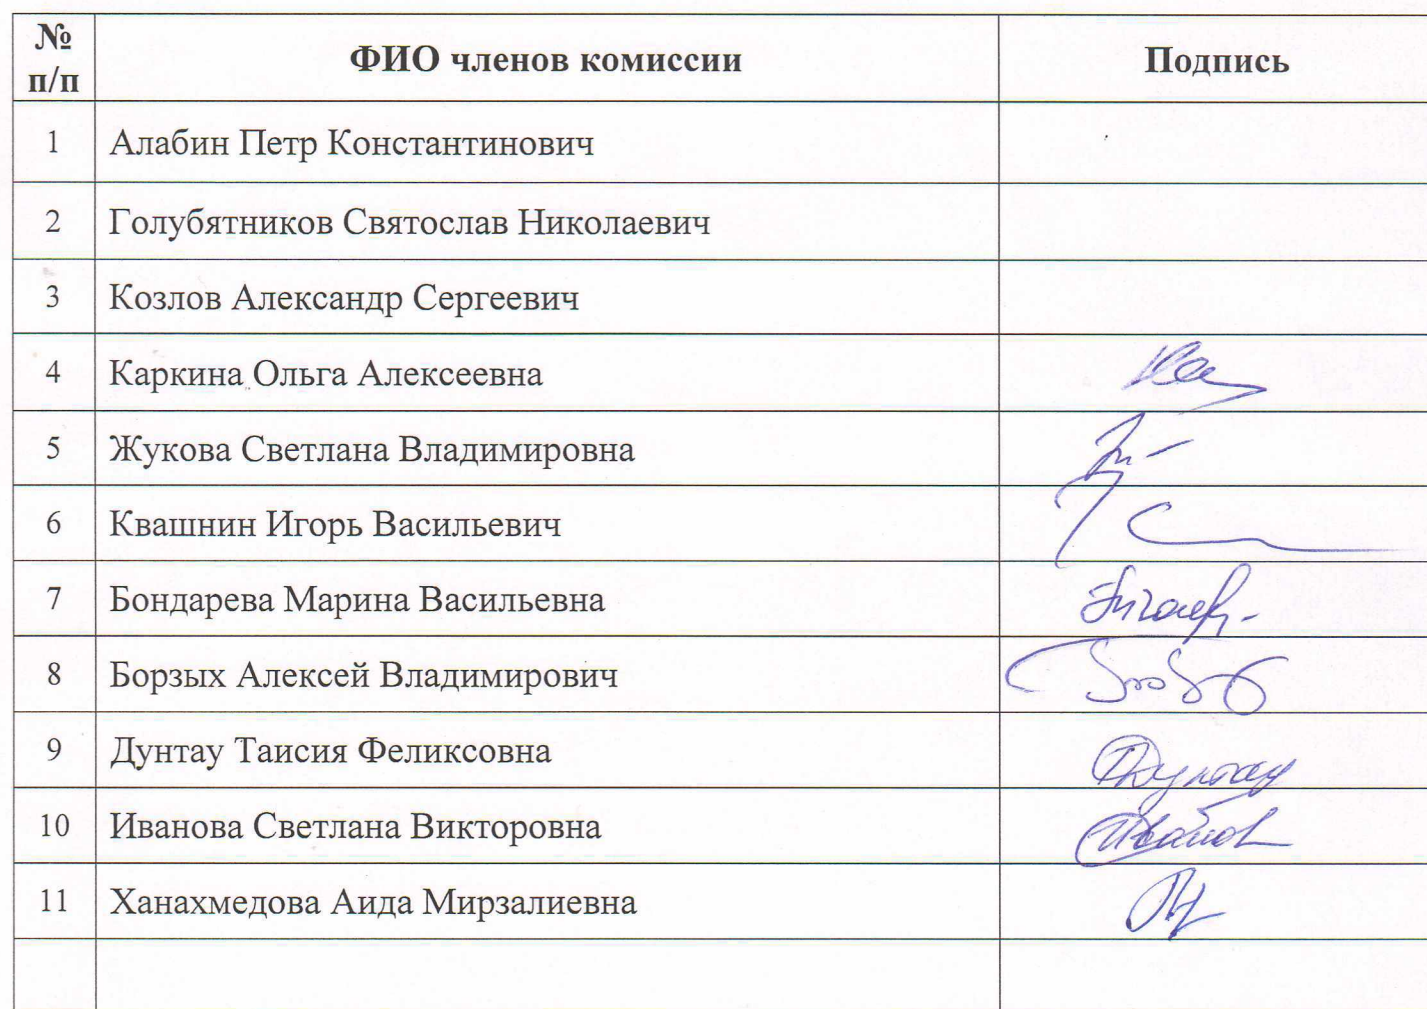 № п/п ФИО членов комиссии Подпись
1 Алабин Петр Константинович
2 Голубятников Святослав Николаевич
3 Козлов Александр Сергеевич
4 Каркина Ольга Алексеевна
5 Жукова Светлана Владимировна
6 Квашнин Игорь Васильевич
7 Бондарева Марина Васильевна
8 Борзых Алексей Владимирович
9 Дунтау Таисия Феликсовна
10 Иванова Светлана Викторовна
11 Ханахмедова Аида Мирзалиевна